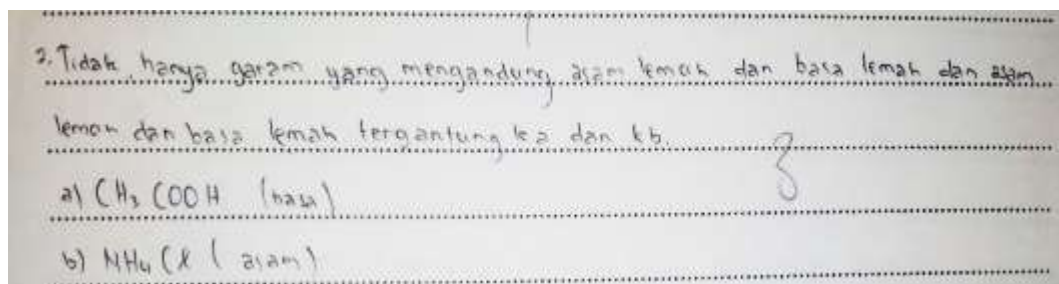 2. Tidak, hanya garam yang mengandung asam lemah dan basa lemah dan asam
lemah dan basa lemah tergantung ka dan kb.
a) CH3 COOH (basa)
b) NH4 Cl ( asam)
3